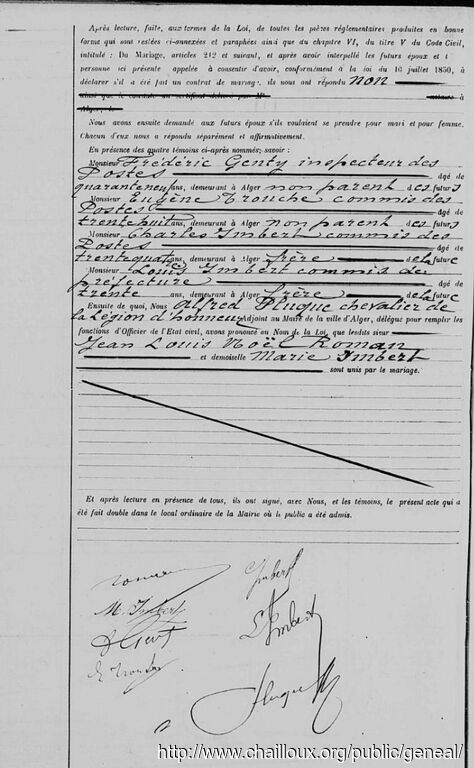 Après lecture, faite, aux termes de la Loi, de toutes les pièces réglementaires produites en bonne
forme qui sont restées ci-annexées et paraphées ainsi que du chapitre VI, du titre V du Code Civil,
intitulé : Du Mariage, articles 212 et suivant, et après avoir interpellé les futurs époux et l
personne ici présente appelée à consentir d'avoir, conformément à la loi du 10 juillet 1850, à
déclarer s'il a été fait un contrat de mariage, ils nous ont répondu non
Alger, le
Nous avons ensuite demandé aux futurs époux s'ils voulaient se prendre pour mari et pour femme.
Chacun d'eux nous a répondu séparément et affirmativement.
En présence des quatre témoins ci-après nommés; savoir :
Monsieur Frédéric Genty inspecteur des
Postes âgé de
quaranteneuf ans, demeurant à Alger non parent des futurs
Monsieur Eugène Trouche commis des
Postes âgé de
trentehuit ans, demeurant à Alger non parent des futurs
Monsieur Charles Imbert commis des
Postes âgé de
trentequatre ans, demeurant à Alger frère de la future
Monsieur Louis Imbert commis de
préfecture âgé de
trente ans, demeurant à Alger frère de la future
Ensuite de quoi, Nous Alfred Pluque chevalier de
la Légion d'honneur Adjoint au Maire de la ville d'Alger, délégué pour remplir les
fonctions d'Officier de l'Etat civil, avons prononcé au Nom de la Loi, que lesdits sieur
Jean Louis Noël Roman
et demoiselle Marie Imbert
sont unis par le mariage.
Et après lecture en présence de tous, ils ont signé, avec Nous, et les témoins, le présent acte qui a
été fait double dans le local ordinaire de la Mairie où le public a été admis.
Imbert
M. Imbert
L Imbert
Pluque
http://www.chailloux.org/public/geneal/